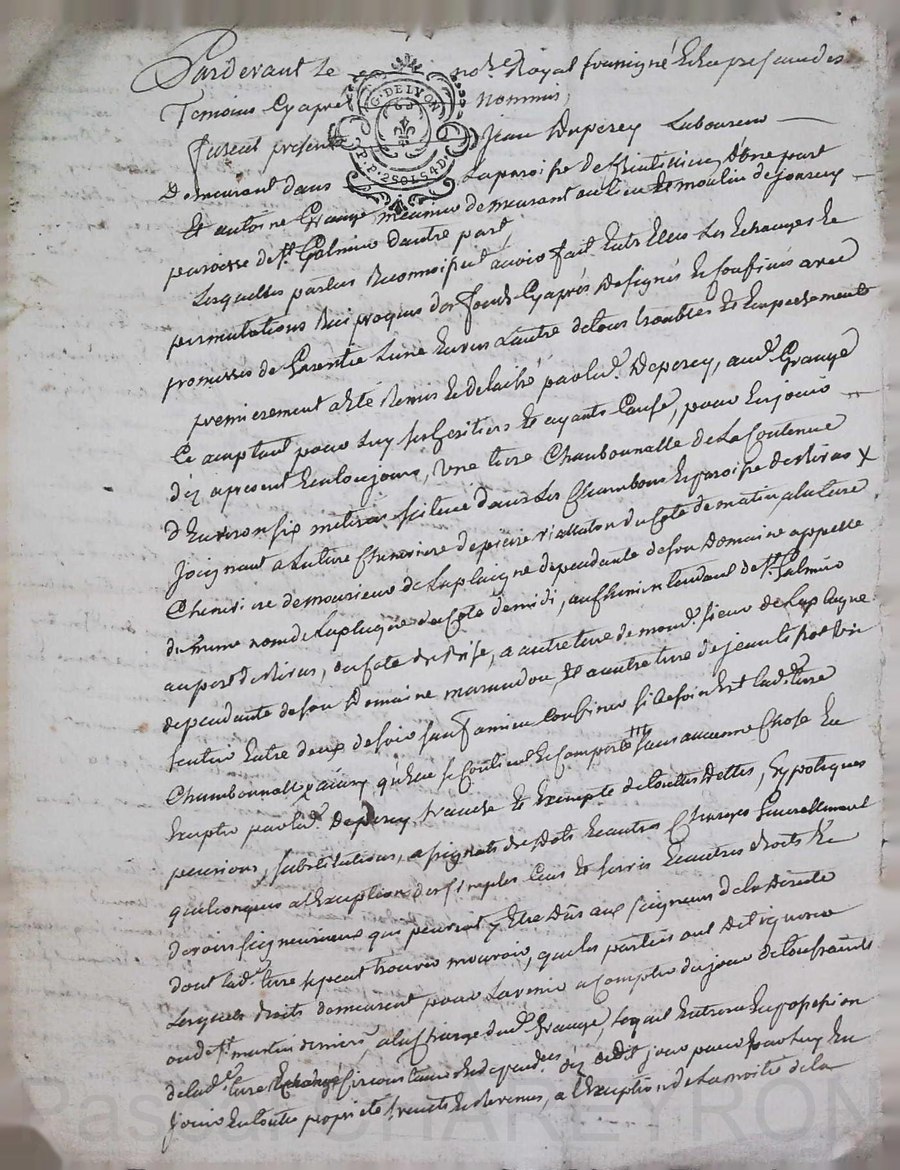 Pardevant le not.re Royal soussigné & En presence des
Temoins Cyaprés nommés,
G. DE LYON
P.P. 2 SOLS 4 D.
furent présents Jean Duperey Laboureur
Demeurant dans La paroisse de D'une part
Et antoine Grange meunier demeurant au lieu Et moulin de
paroisse de S.t Galmier d'autre part,
Lesquelles parties Reconnoissent avoir fait Entr'Elles Les Echanges Et
permutations Reciproques des fonds Cyaprés Designés Et Confinés avec
promesses de Garentie L'une Envers L'autre de tous troubles Et Empechements
premierement a Eté Remis Et delaissé par led. Deperey, aud. Grange
Ce acceptant pour Luy ses heritiers Et ayants Cause, pour En jouir
d'Ez apresent Et a toujours, Une terre Chambonnalle de La Contenue
d'Environ six scituée dans Les Chambons Et paroisse de
Joignant a La terre Cheneviere de pierre du Coté de matin, a La terre
Cheneviere de monsieur de Laplaigne dependante de son Domaine appellé
du meme nom de Laplagne du Coté de midi, au Chemin tendant de S.t Galmier
au port de, du Coté de Bise, a autre terre de mond. sieur de Laplagne
dependante de son Domaine, Et a autre terre de jean
sentier Entre deux de soir sauf a mieux Confiner si besoin Est lad. terre
Chambonnalle ainsy qu'Elle se Contient Et Comporte sans aucune Chose En
Excepter par led. Deperey, franche Et Exempte de touttes dettes, hypoteques
pensions, substitutions, assignats de Dots Et autres Charges Generallement
quelconques a l'Exception des simples Cens Et servis Et autres droits Et
devoirs seigneuriaux qui peuvent y Etre Dûs aux seigneurs de la Directe
dont lad. terre se peut trouver mouvoir, que les parties ont Dit ignorer
Lesquels droits demeurent pour L'avenir a Compter du jour de toussaints
ou S.t martin dernier a la Charge dud. Grange, Lequel Entrera En possession
de lad. terre Echangé Circonstances & dependances d'Ez Cedit jour pour par Luy En
Jouir En toute proprieté fruits Et Revenus, a L'Exception de La moitié de la
Pascal CHAREYRON